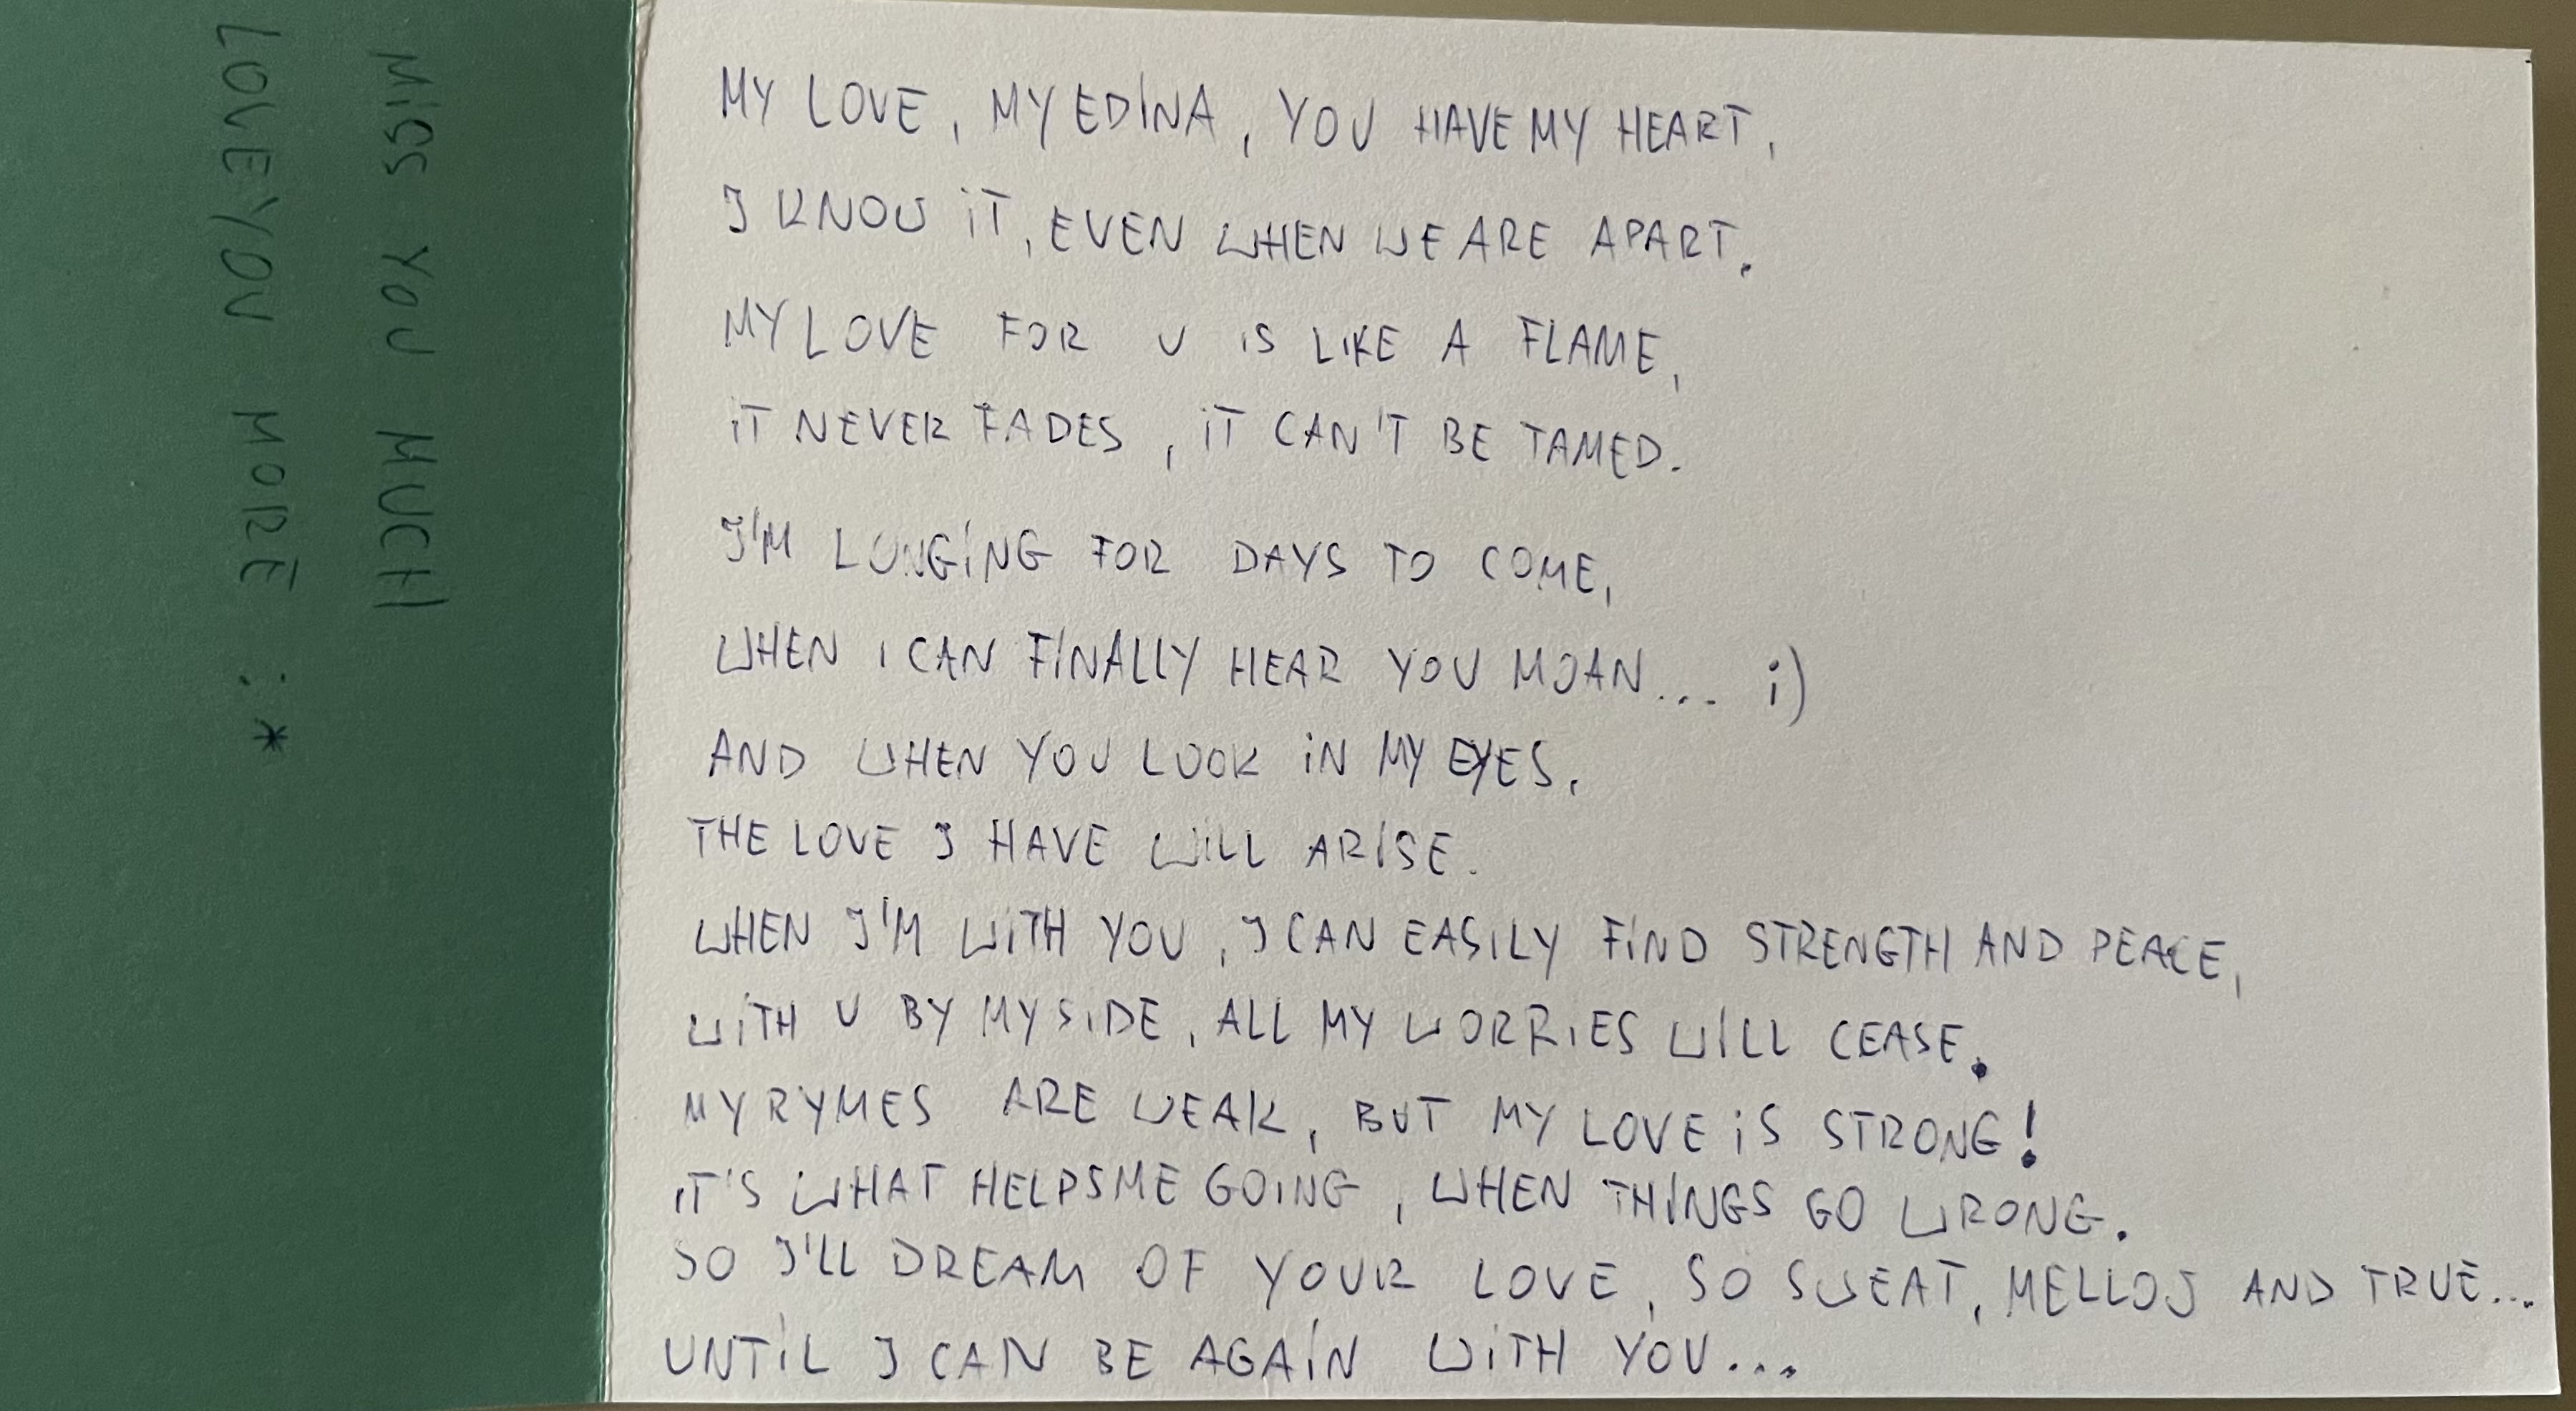 MISS YOU MUCH
LOVE YOU MORE :*
MY LOVE, MY EDINA, YOU HAVE MY HEART,
I KNOW IT, EVEN WHEN WE ARE APART.
MY LOVE FOR U IS LIKE A FLAME,
IT NEVER FADES, IT CAN'T BE TAMED.
I'M LONGING FOR DAYS TO COME,
WHEN I CAN FINALLY HEAR YOU MOAN... ;)
AND WHEN YOU LOOK IN MY EYES,
THE LOVE I HAVE WILL ARISE.
WHEN I'M WITH YOU, I CAN EASILY FIND STRENGTH AND PEACE,
WITH U BY MY SIDE, ALL MY WORRIES WILL CEASE.
MY RYMES ARE WEAK, BUT MY LOVE IS STRONG!
IT'S WHAT HELPS ME GOING, WHEN THINGS GO WRONG.
SO I'LL DREAM OF YOUR LOVE, SO SWEAT, MELLOW AND TRUE...
UNTIL I CAN BE AGAIN WITH YOU...